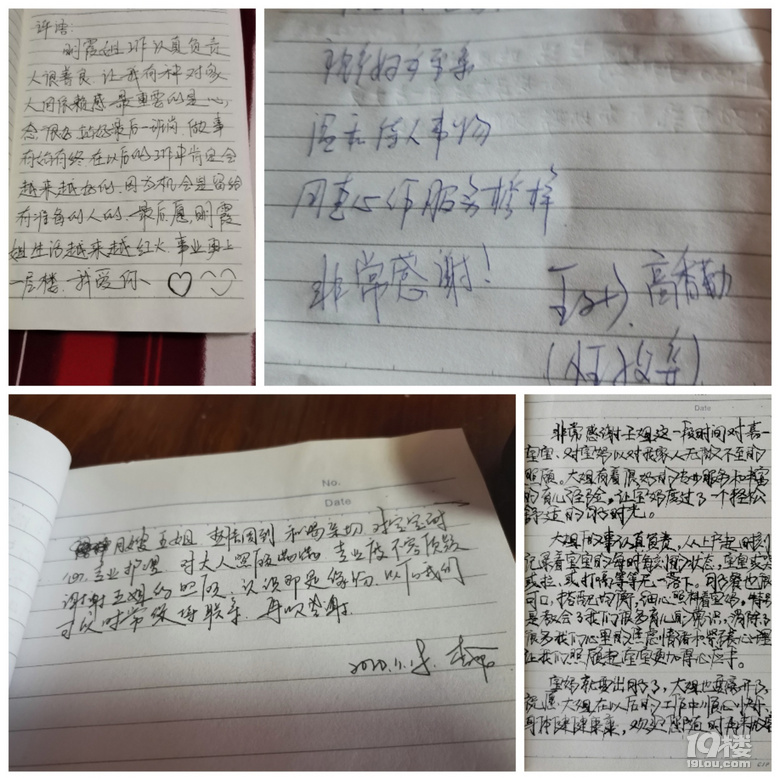 评语:
明霞姐工作认真负责
人很善良.让我有种对家
人间很赖感.最重要的是心
态很好.站好最后一班岗.做事
有始有终.在以后的工作中肯定会
越来越好的.因为机会是留给
有准备的人的.最后愿明霞
姐生活越来越红火.事业更上
一层楼.我爱你、♡
温和待人事物
用真心作服务榜样
非常感谢!
高香勤
No.
Date
月嫂王姐 和蔼亲切.对宝宝耐
心专业护理 对大人照顾 专业度不容质疑
谢谢王姐的照顾,认识即是缘份.以后我们
可以时常保持联系.再次感谢.
2020.11.15.
Date
非常感谢王姐这一段时间对
宝宝、对宝妈以对我家人无微不至的
照顾。大姐有着很好的专业服务和丰富
的育儿经验,让宝妈度过了一个轻松
舒适的月子时光。
大姐做事认真负责,从上户起时刻
记录着宝宝的每时每刻的状态,宝宝或
或拉、或打嗝等等无一落下。月子餐也很
可口,搭配均衡,细心照料着宝妈。特别
是教会了我们很多育儿小常识,消除了
很多我们心里的焦虑情绪和紧张心理
让我们照顾起宝宝更加得心应手。
宝妈就要出月子了,大姐也要离开了,
祝愿大姐在以后的工作中顺心顺利、
身体健健康康,欢迎随时再来
19楼
19lou.com